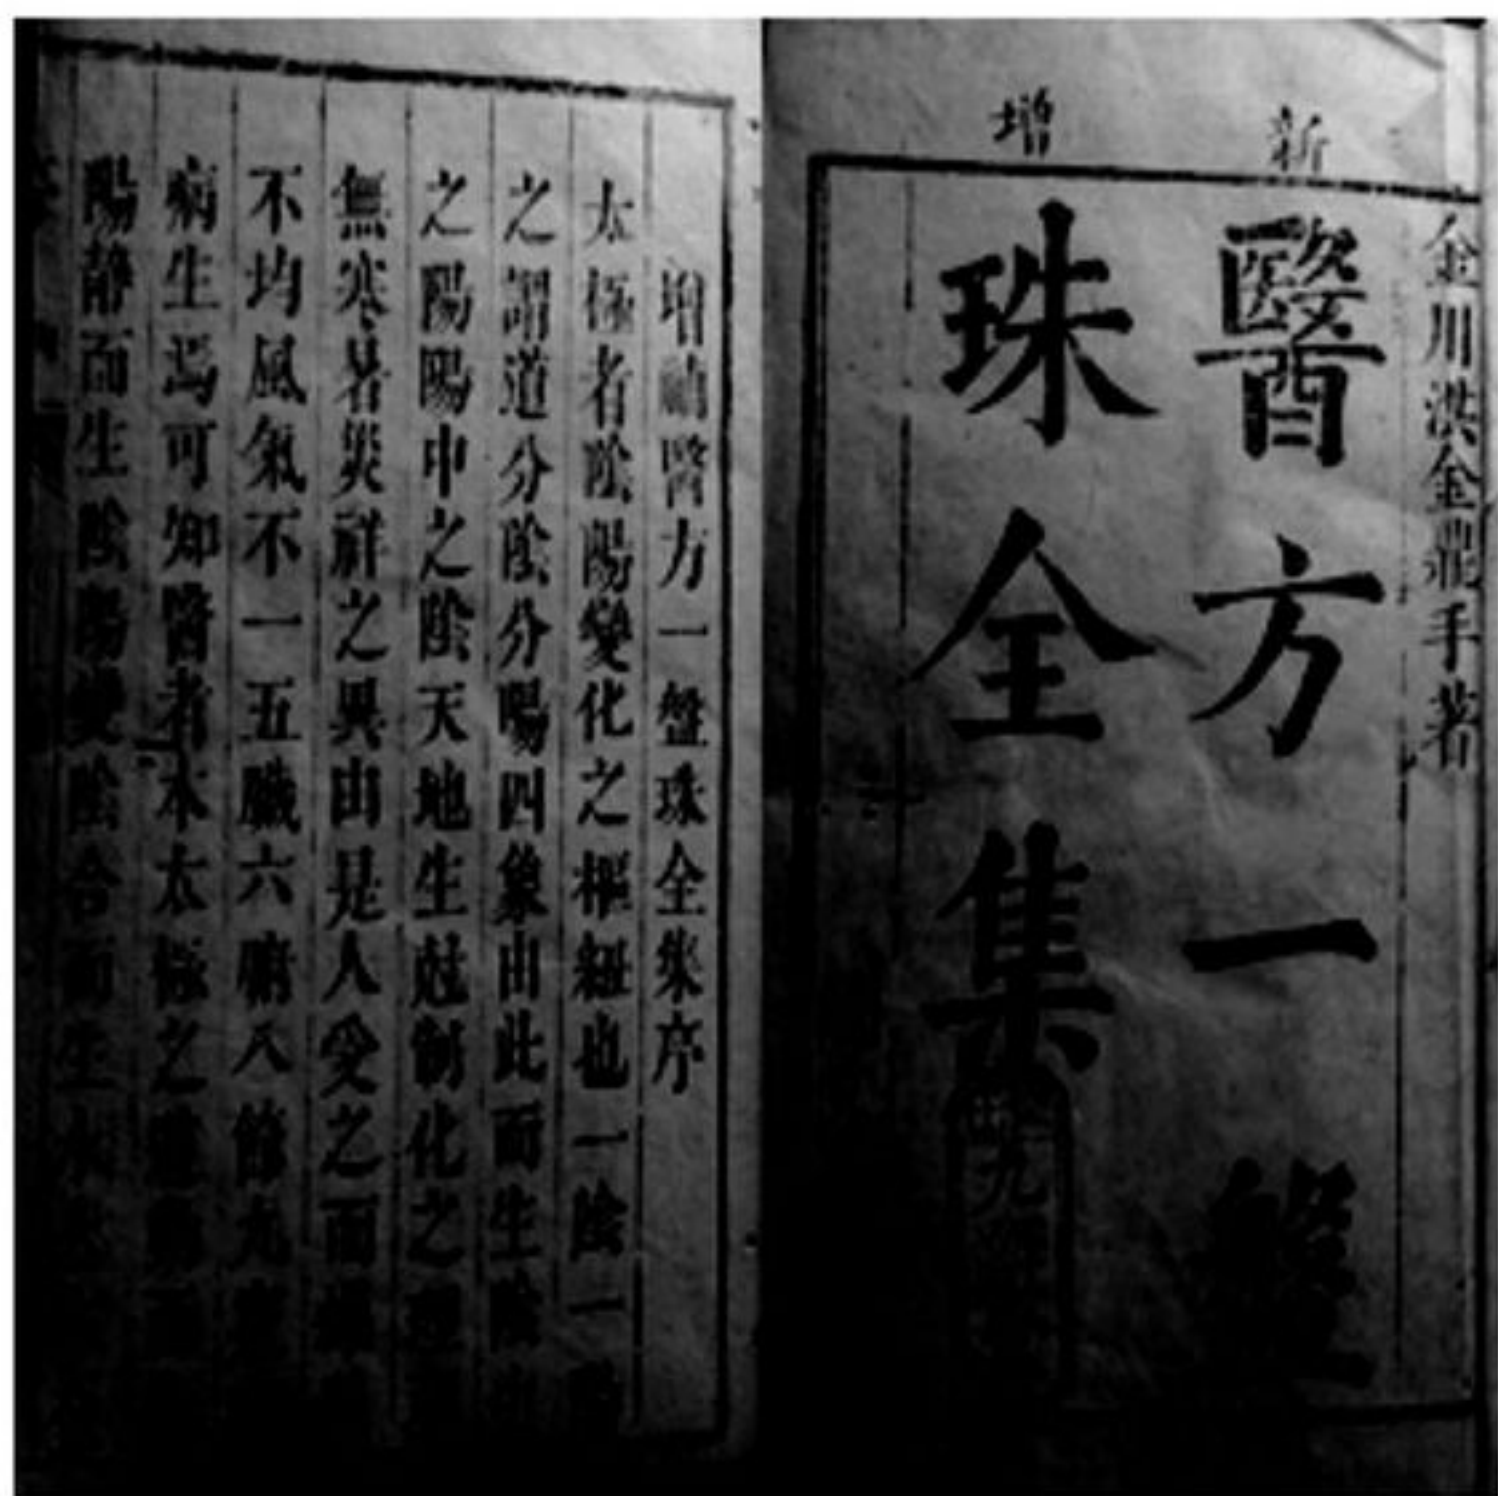 新增
金川洪金鼎手著
醫方一盤
珠全集
增補醫方一盤珠全集序
太極者陰陽變化之樞紐也一陰一
之謂道分陰分陽四象由此而生陰
之陽陽中之陰天地生尅制化之理
無寒暑災祥之異由是人受之而
不均風氣不一五臟六腑八節九
病生焉可知醫者本太極之道動而
陽靜而生陰陽變陰合而生水